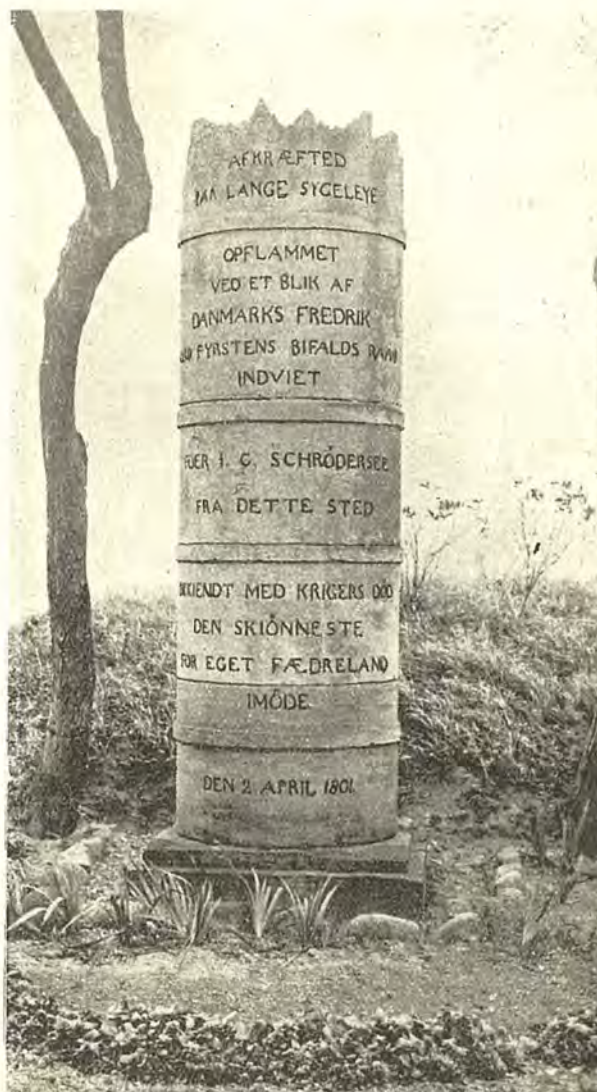 AFKRÆFTED
PAA LANGE SYGELEYE
OPFLAMMET
VED ET BLIK AF
DANMARKS FREDRIK
FYRSTENS BIFALDS
INDVIET
I. C. SCHRÖDERSEE
FRA DETTE STED
MED KRIGERS DÖD
DEN SKIÖNNESTE
FOR EGET FÆDRELAND
IMÖDE
DEN 2. APRIL 1801.